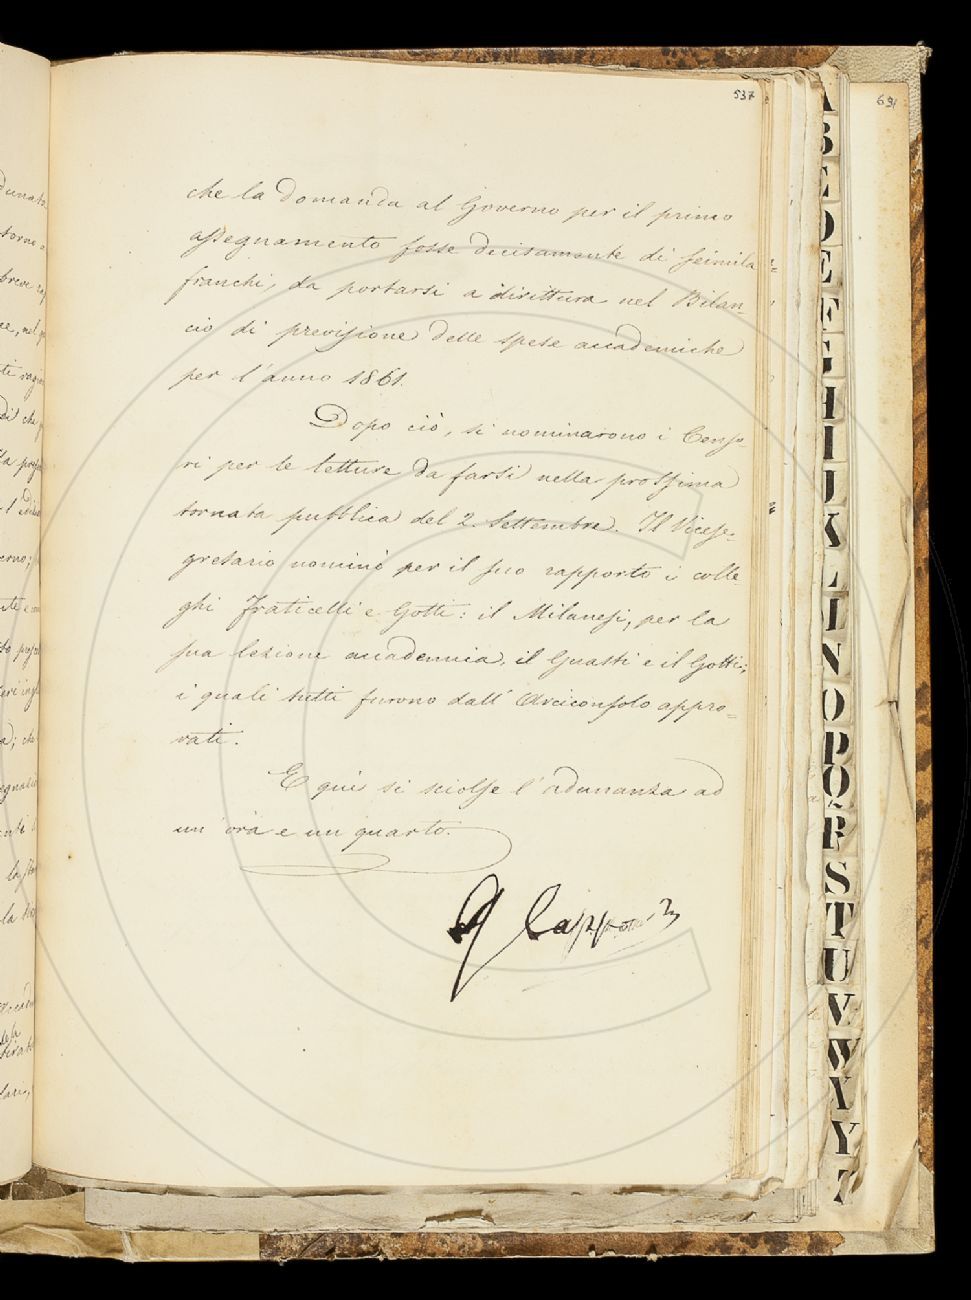 537
che la Domanda al Governo per il primo
assegnamento fosse decisamente di seimila
franchi, da portarsi a dirittura nel Bilan-
cio di previsione delle spese accademiche
per l'anno 1861.
Dopo ciò, si nominarono i Censo
ri per le letture da farsi nella prossima
tornata pubblica del 2. Settembre. Il Vicese-
gretario nominò per il suo rapporto i colle
ghi Fraticelli e Gotti: il Milanesi, per la
sua lezione accademia, il Guasti e il Gotti;
i quali tutti furono dall' Arciconsolo appro-
vati.
E qui si sciolse l'adunanza ad
un'ora e un quarto.
G Capponi
69
A
B
C
D
E
F
G
H
I
J
K
L
M
N
O
P
Q
R
S
T
U
V
W
X
Y
Z